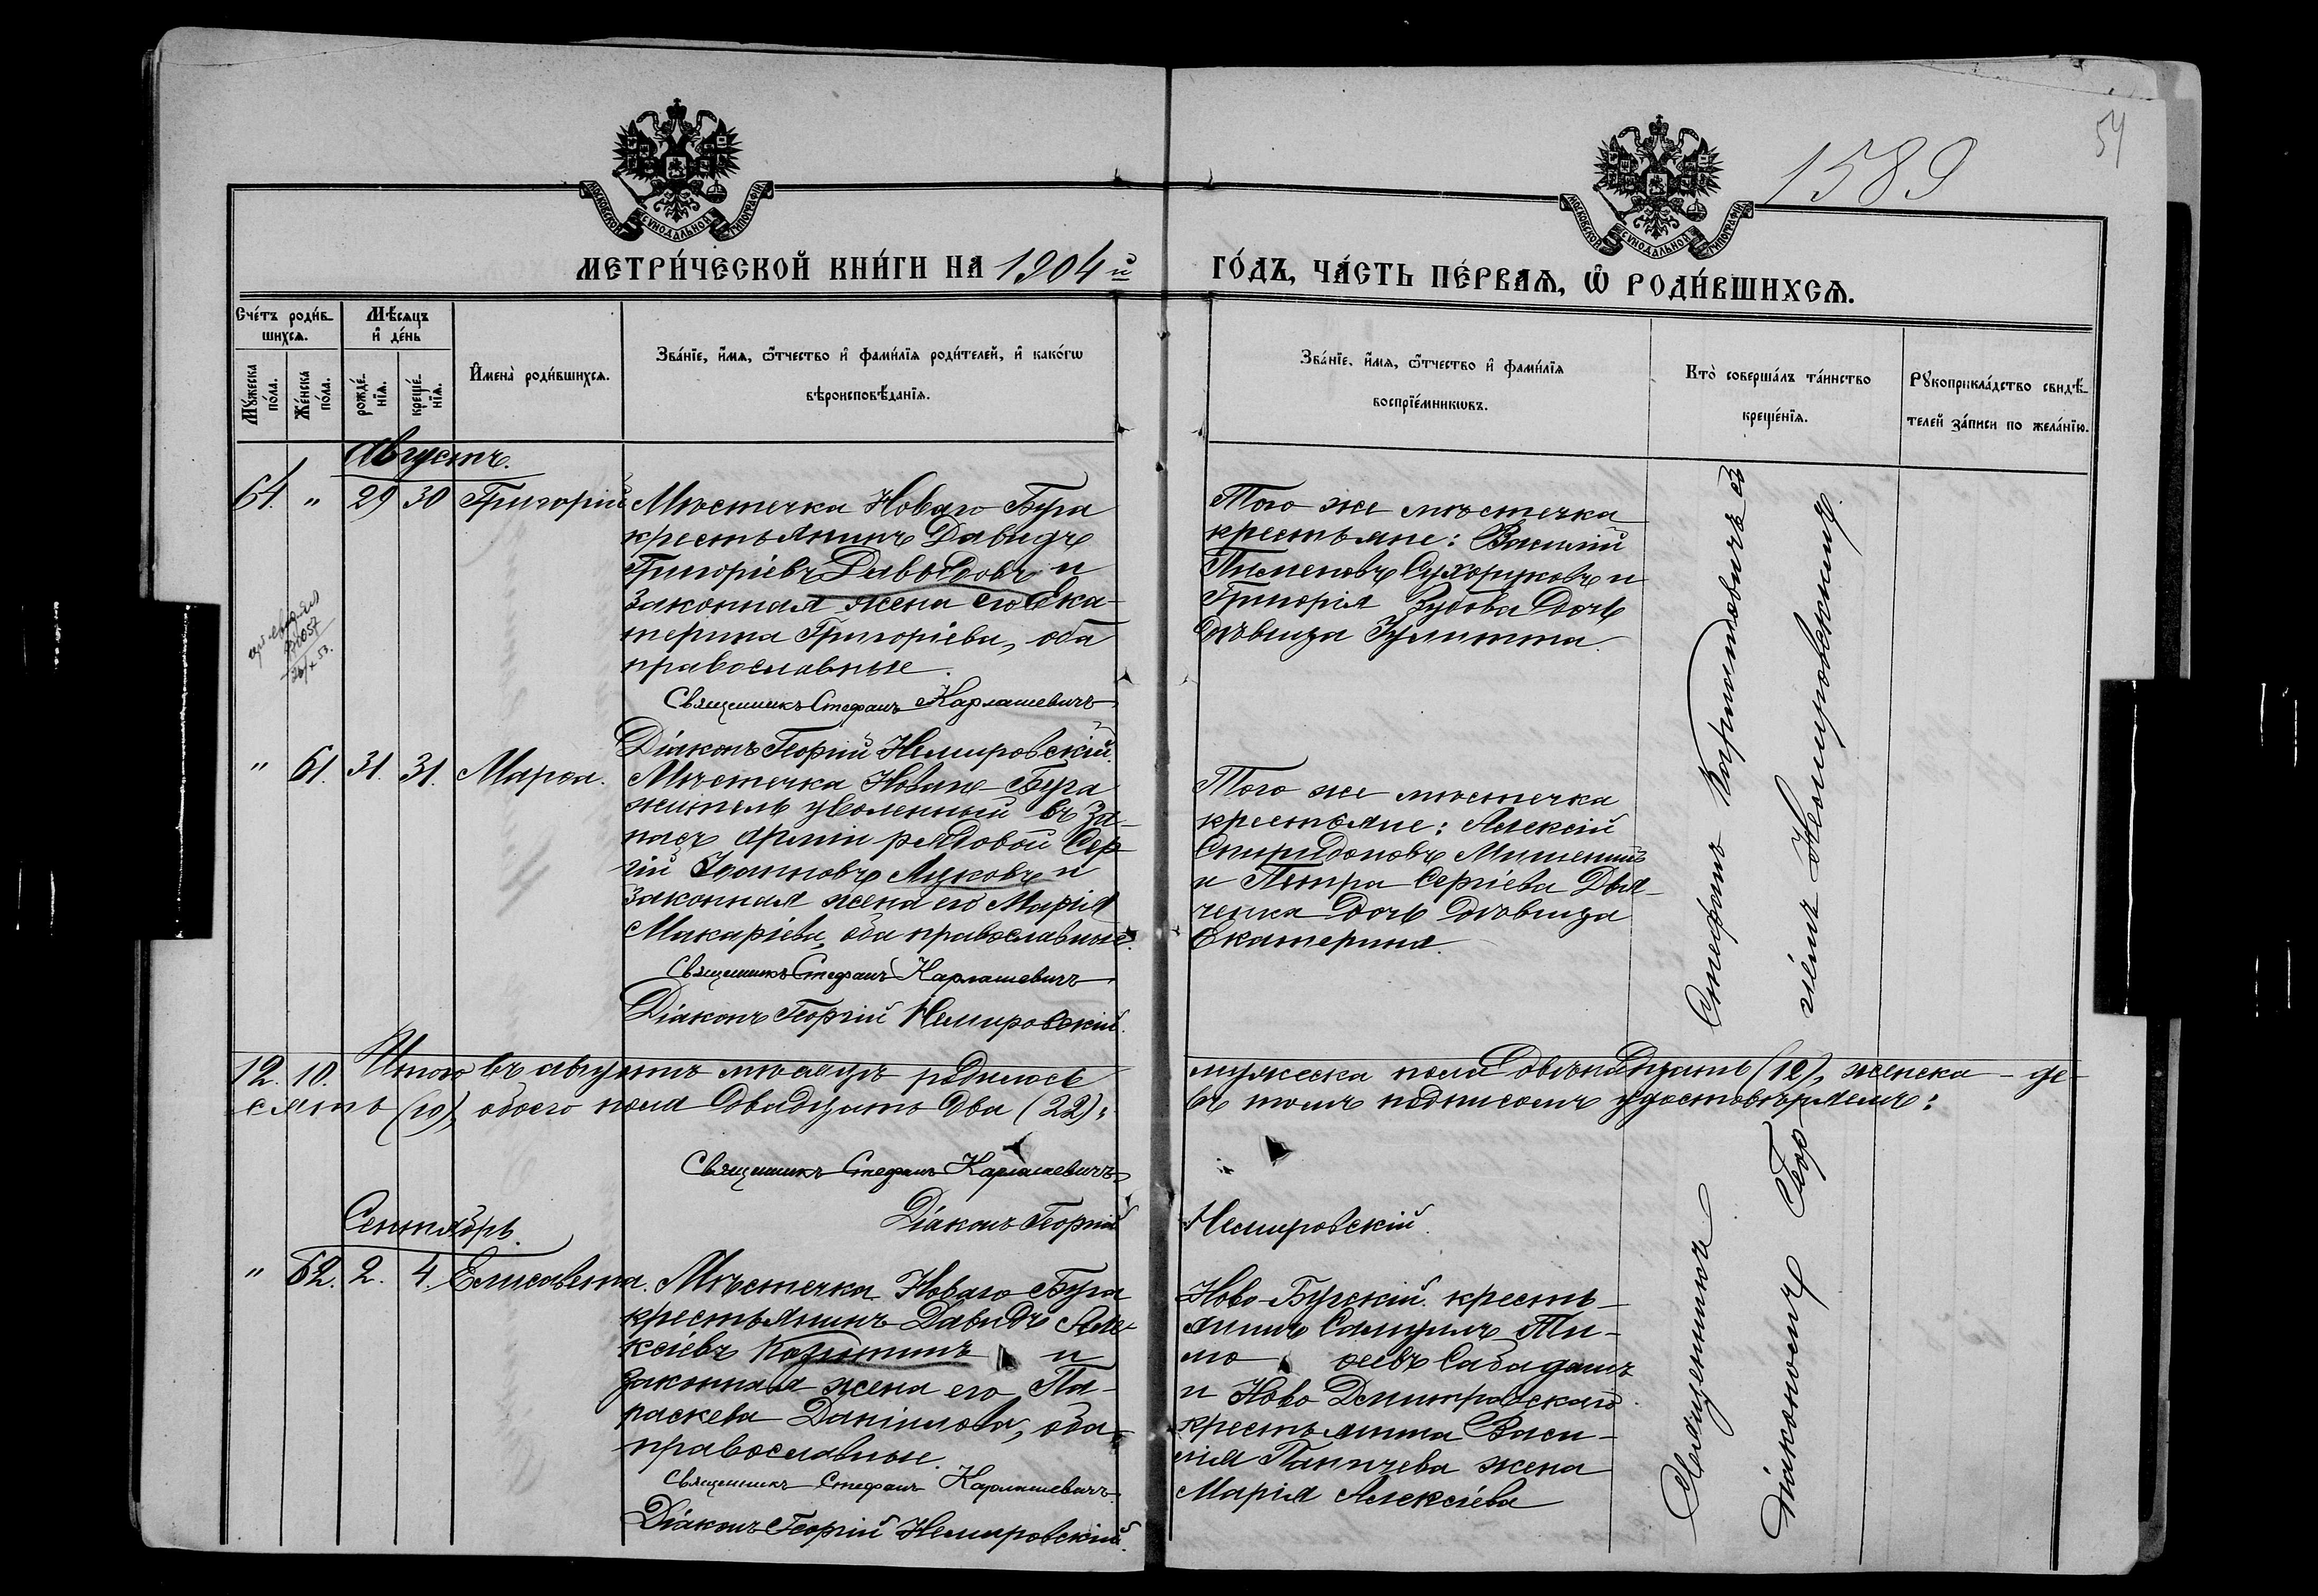 54
1589
МОСКОВСКОЙ СѴНОДАЛЬНОЙ ТИПОГРАФІИ
МОСКОВСКОЙ СѴНОДАЛЬНОЙ ТИПОГРАФІИ
МЕТРИ́ЧЕСКОЙ КНИ́ГИ НА 1904й
ГО́ДЪ, ЧА́СТЬ ПЕ́РВАѦ, Ѽ РОДИ́ВШИХСѦ.
Сче́тъ роди́в-
шихсѧ.
Мѣ́сѧцъ
и҆ де́нь
Мꙋ́жеска
по́ла.
Же́нска
по́ла.
рожде́-
нїѧ.
креще́-
нїѧ.
И҆мена̀ роди́вшихсѧ.
Зва́нїе, и҆́мѧ, ѻ҆́тчество и҆ фами́лїѧ роди́телей, и҆ како́гѡ
вѣроисповѣ́данїѧ.
Зва́нїе, и҆́мѧ, ѻ҆́тчество и҆ фами́лїѧ
воспрїе́мникѡвъ.
Кто̀ соверша́лъ та́инство
креще́нїѧ.
Рꙋкоприкла́дство свидѣ́-
телей за́писи по жела́нїю.
Августъ.
64. " 29 30 Григорій
Мѣстечка Новаго Буга
крестьянинъ Давидъ
Григоріевъ Давыдовъ и
законная жена его Ека-
терина Григоріева, оба
православные.
Священникъ Стефанъ Карлашевичъ
Діаконъ Георгій Немировскій.
Того же мѣстечка
крестьяне: Василій
Пименовъ Сухоруковъ и
Григорія Зубова дочь
дѣвица Улитта.
" 61. 31. 31. Марѳа.
Мѣстечка Новаго Буга
житель уволенный въ за-
пасъ арміи рядовой Сер-
гій Іоанновъ Луковъ и
законная жена его Марія
Макаріева, оба православные.
Священникъ Стефанъ Карлашевичъ
Діаконъ Георгій Немировскій.
Того же мѣстечка
крестьяне: Алексій
Спиридоновъ
и Петра Сергіева Дья-
ченка дочь дѣвица
Екатерина.
12. 10. Итого въ августѣ мѣсяцѣ родилось
мужеска пола двѣнадцать (12), женска - де-
сять (10), обоего пола двадцать два (22);
въ томъ подписомъ удостовѣряемъ:
Священникъ Стефанъ Карлашевичъ
Діаконъ Георгій
Немировскій.
Сентябрь.
" 62. 2. 4. Елисавета.
Мѣстечка Новаго Буга
крестьянинъ Давидъ Але-
ксіевъ и
законная жена его Па-
раскева Даніилова, оба
православные.
Священникъ Стефанъ Карлашевичъ
Діаконъ Георгій Немировскій.
Ново-Бугскій кресть-
янинъ Самуилъ Ти-
мо ѳеевъ Сабадашъ
и Ново Димитровскаго
крестьянина Васи-
лія Паничева жена
Марія Алексіева
Священникъ Стефанъ Карлашевичъ съ
діакономъ Геор
гіемъ Немировскимъ.